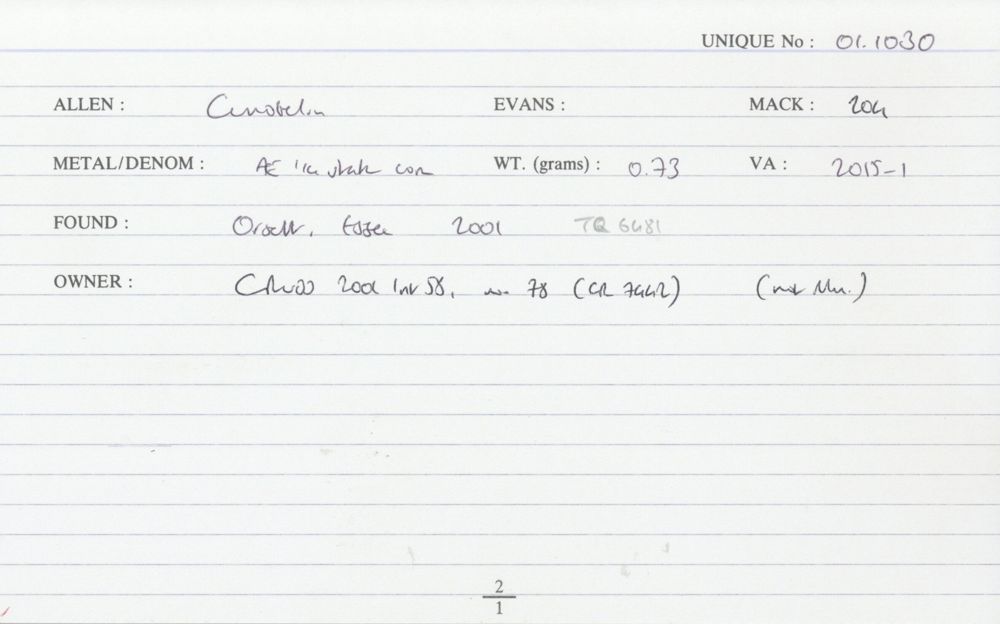 UNIQUE No : 01.1030
ALLEN : Cunobelin EVANS : MACK : 204
METAL/DENOM : AE WT. (grams) : 0.73 VA : 2015-1
FOUND : Orsett, Essex 2001 TQ 6481
OWNER : 2001 Inv 58, no. 78 (CR 7442)
2
1